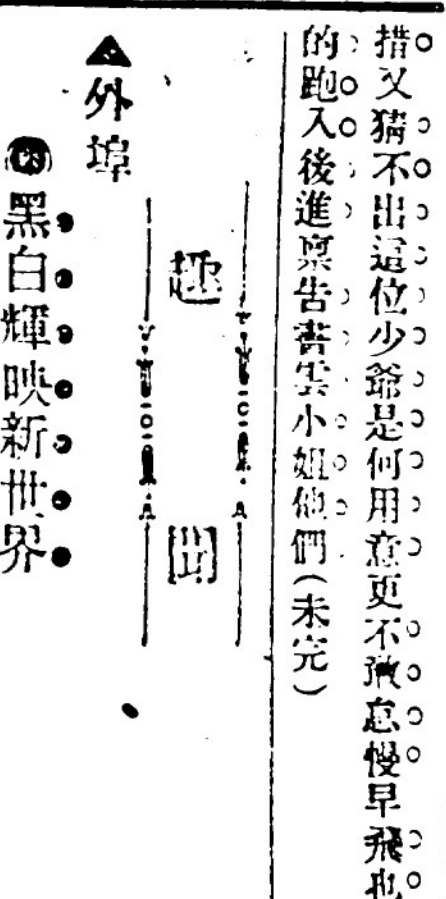 措又猜不出這位少爺是何用意更不敢怠慢早飛也
的跑入後進禀告書雲小姐他們(未完)
趣聞
▲外埠
黑白輝映新世界